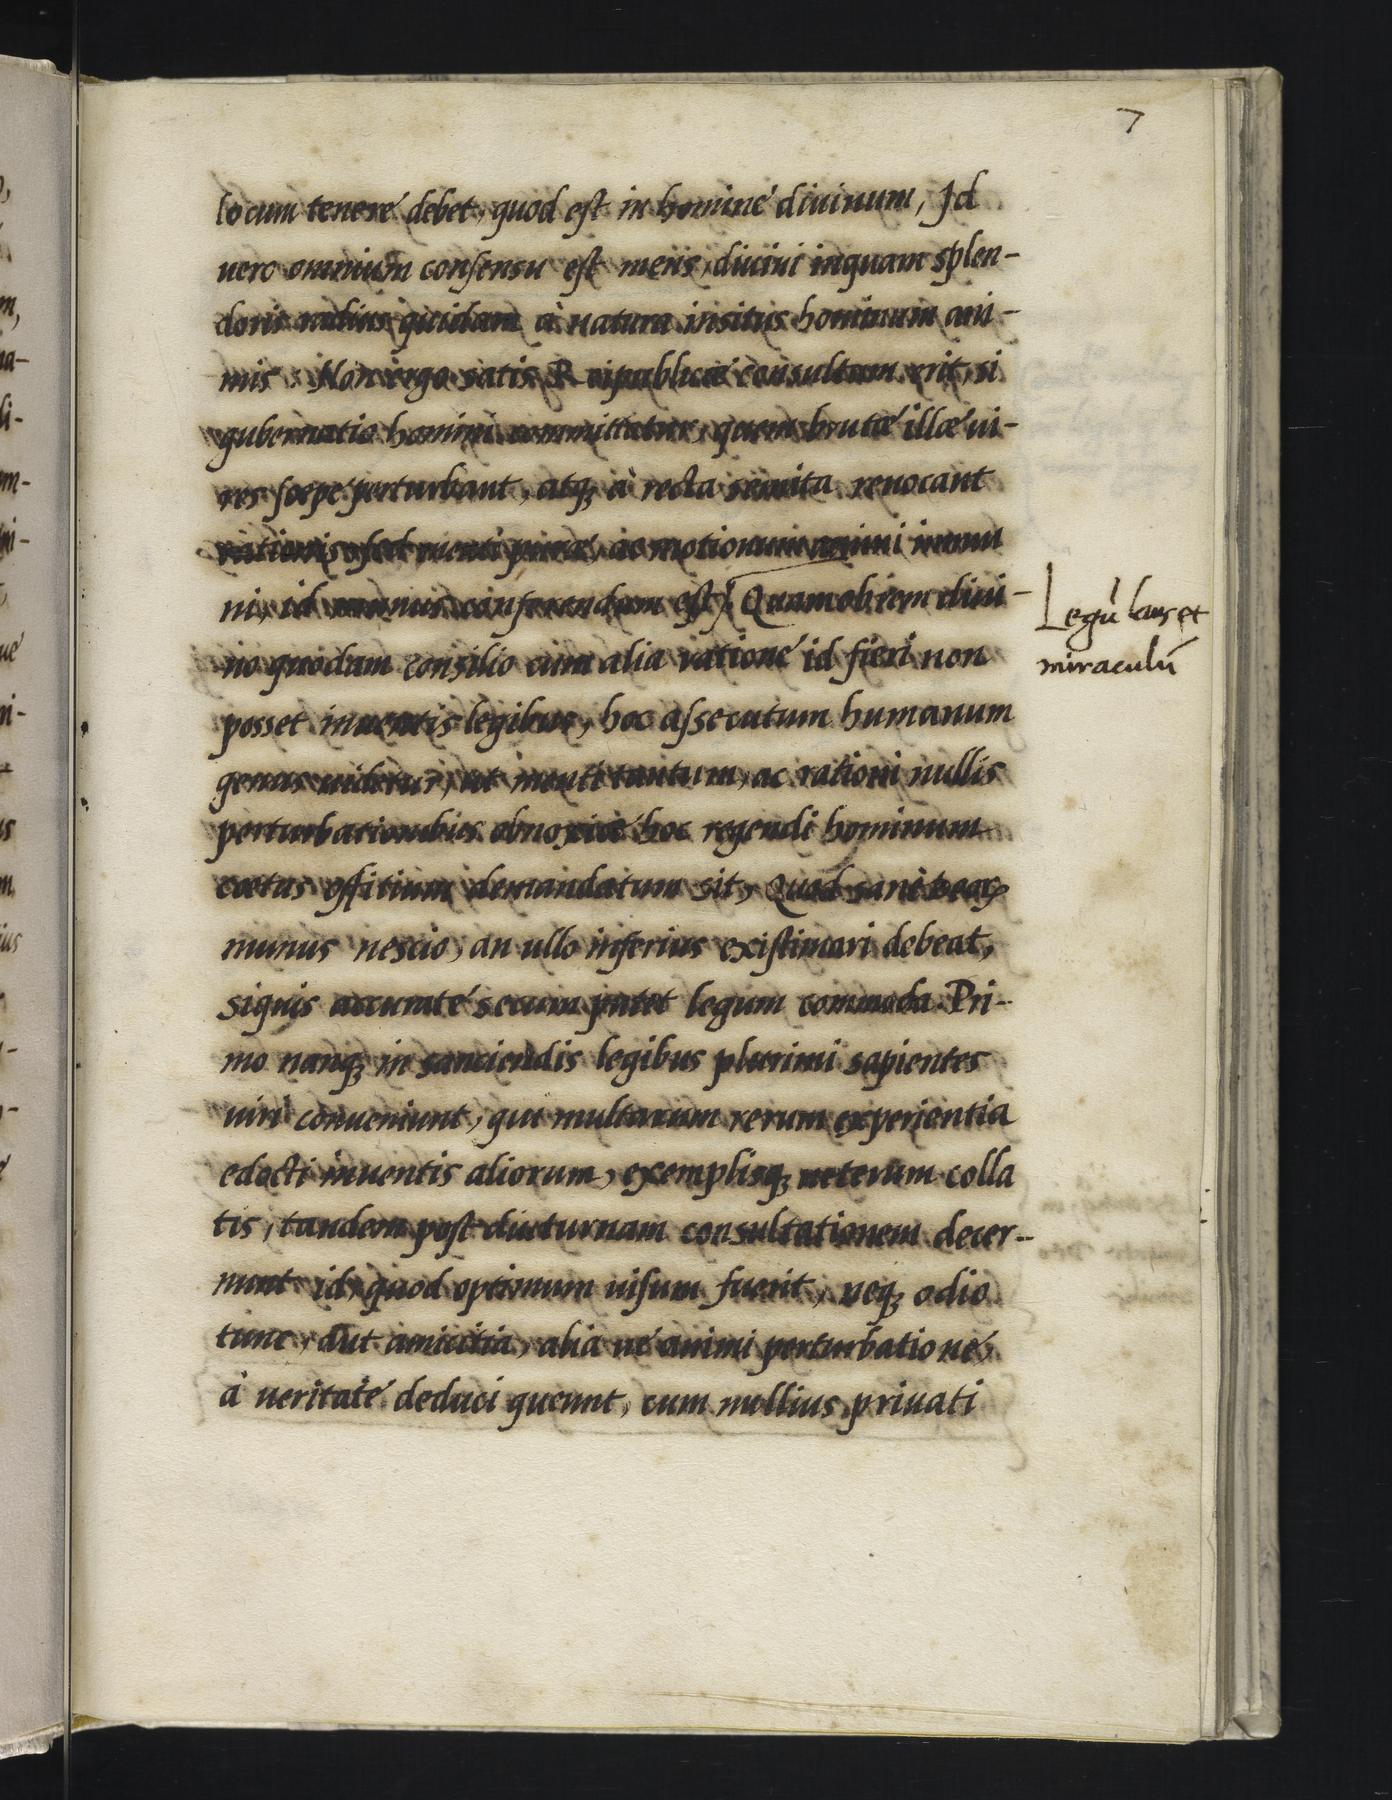 7
locum tenere debet, quod est in homine diuinum, Id
uero omnium consensu est mens, diuini inquam splen-
doris radius quidam à natura insitus hominum ani-
mis. Non ergo satis Reipublicæ consultum erit, si
gubernatio homini committatur, quem brutæ illæ ui-
res sæpe perturbant, atq; à recta semita reuocant
rationis, sed menti puræ, ac motionum animi immu
ni, id munus conferendum est. Quamobrem diui-
no quodam consilio cum alia ratione id fieri non
posset inuentis legibus, hoc assecutum humanum
genus uidetur, ut menti tantum, ac rationi nullis
perturbationibus obnoxiæ hoc regendi hominum
cœtus offitium demandatum sit, Quod sanè
munus nescio, an ullo inferius existimari debeat,
siquis accuratè secum putet legum commoda. Pri-
mo nanq; in sanciendis legibus plurimi sapientes
uiri conueniunt, qui multarum rerum experientia
edocti inuentis aliorum, exemplisq; ueterum colla
tis, tandem post diuturnam consultationem decer-
nunt id, quod optimum uisum fuerit, neq; odio
tunc, aut amicitia, alia ue animi perturbatione,
à ueritate deduci queunt, cum nullius priuati
Legū laus et
miraculū